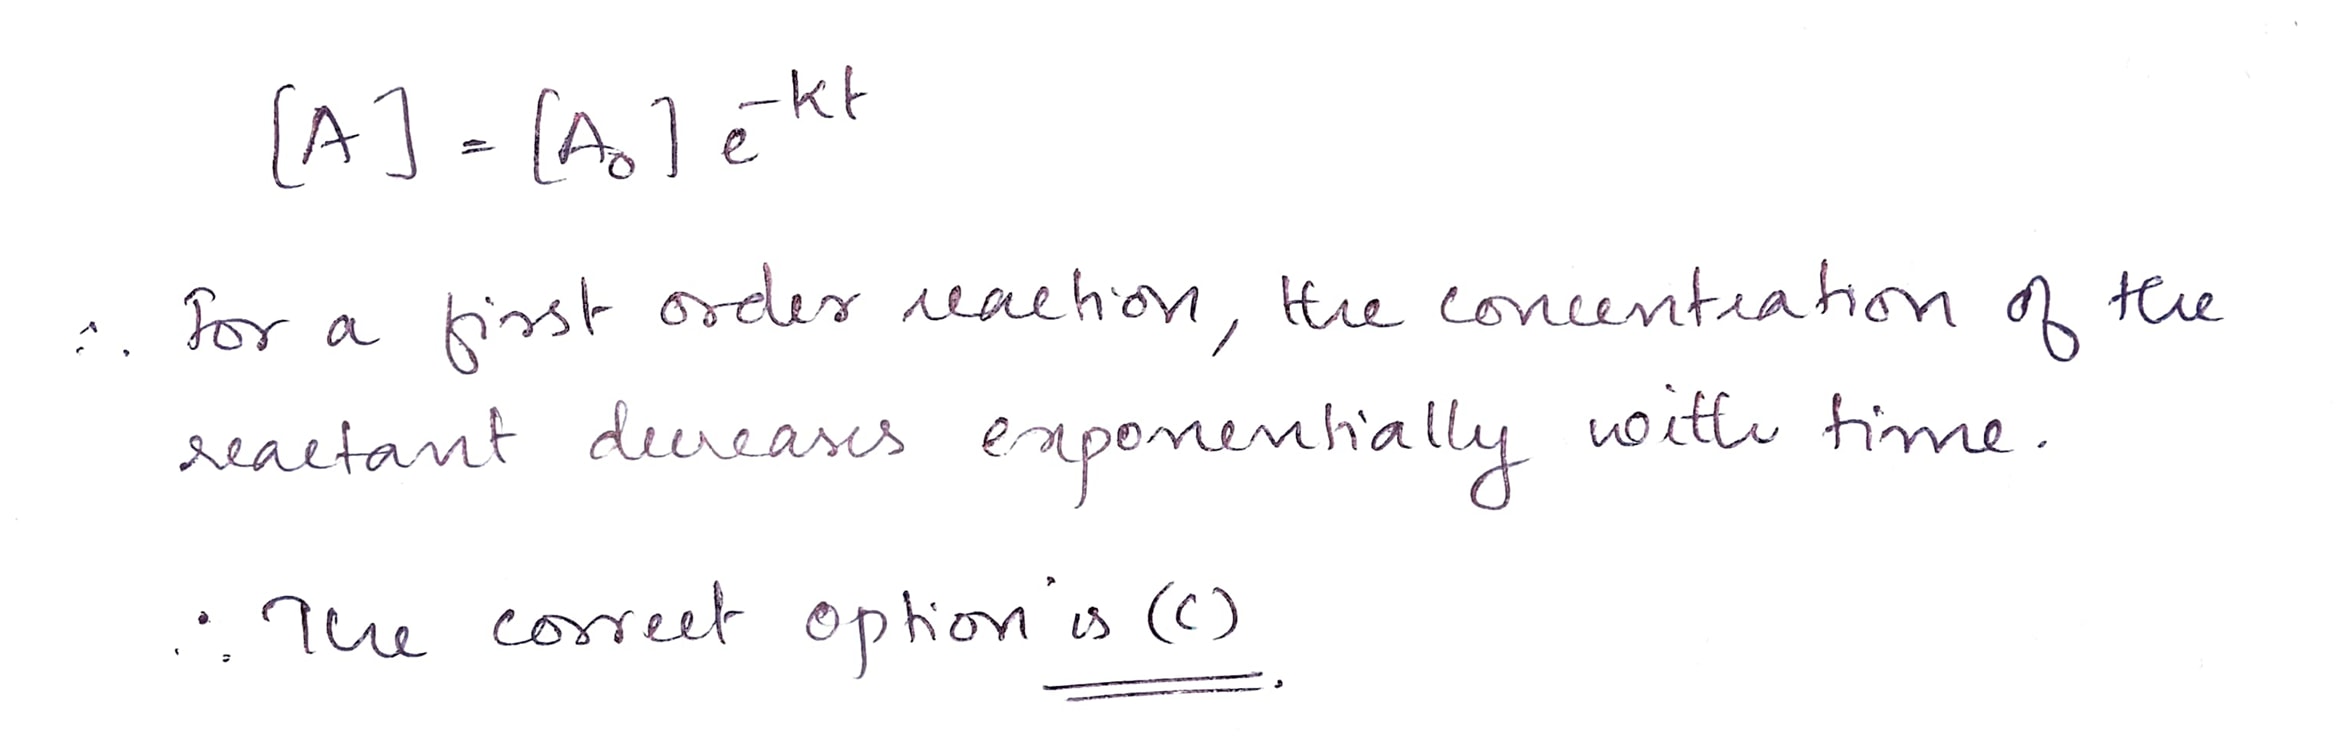 [A] = [A₀] e^{-kt}
∴ For a first order reaction, the concentration of the
reactant decreases exponentially with time.
∴ The correct option is (C).